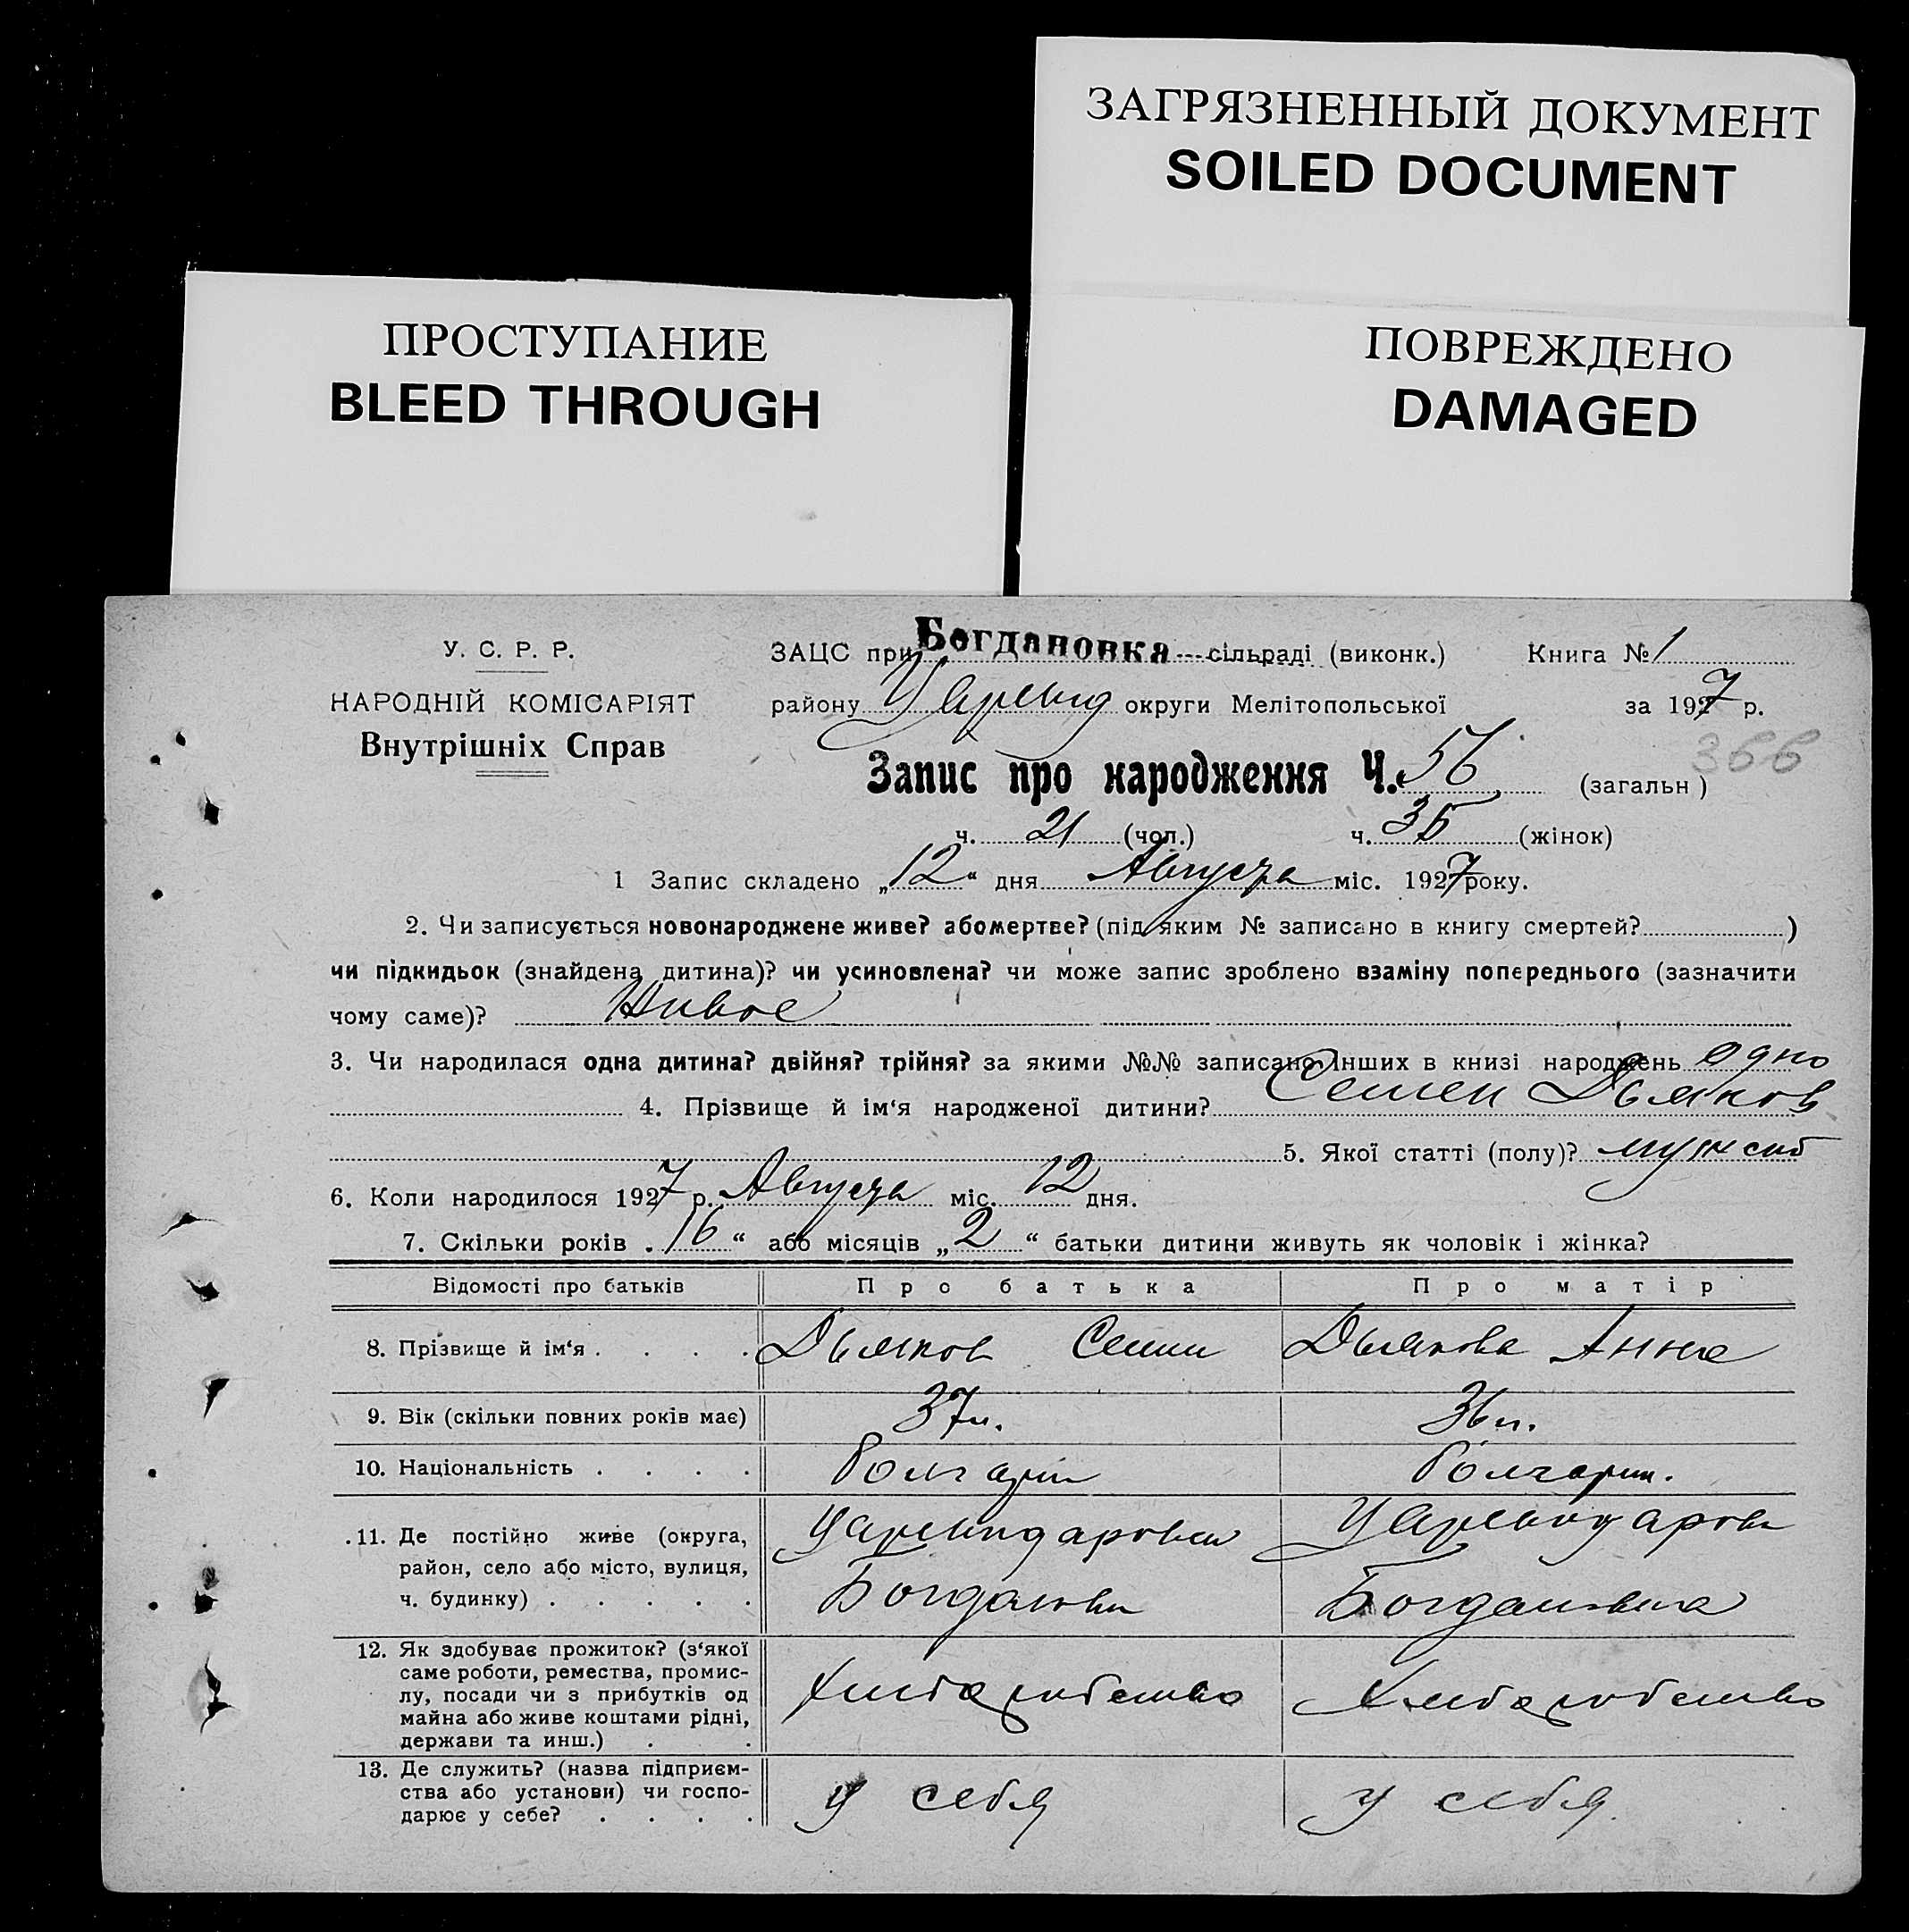 ЗАГРЯЗНЕННЫЙ ДОКУМЕНТ
SOILED DOCUMENT
ПРОСТУПАНИЕ
BLEED THROUGH
ПОВРЕЖДЕНО
DAMAGED
У. С. Р. Р.
НАРОДНІЙ КОМІСАРІЯТ
Внутрішніх Справ
ЗАЦС при Богдановка сільраді (виконк.) Книга № 1
району Царевод округи Мелітопольської за 1927 р.
366
Запис про народження Ч. 56 (загальн)
ч. 21 (чол.) ч. 35 (жінок)
1 Запис складено „12“ дня Августа міс. 1927 року.
2. Чи записується новонароджене живе? або мертве? (під яким № записано в книгу смертей? )
чи підкидьок (знайдена дитина)? чи усиновлена? чи може запис зроблено взаміну попереднього (зазначити
чому саме)? Живое
3. Чи народилася одна дитина? двійня? трійня? за якими №№ записано інших в книзі народжень одно
4. Прізвище й ім‘я народженої дитини? Семен Дьяков
5. Якої статті (полу)? мужск
6. Коли народилося 1927 р. Августа міс. 12 дня.
7. Скільки років „16“ або місяців „2“ батьки дитини живуть як чоловік і жінка?
Відомості про батьків Про батька Про матір
8. Прізвище й ім‘я . . . . Дьяков Семен Дьякова Анна
9. Вік (скільки повних років має) 37 л. 36 л.
10. Національність . . . . болгарин болгарин.
11. Де постійно живе (округа,
район, село або місто, вулиця,
ч. будинку) . . . . . Богдановка Богдановка
12. Як здобуває прожиток? (з‘якої
саме роботи, ремества, промис-
лу, посади чи з прибутків од
майна або живе коштами рідні,
держави та инш.) . . Хлебаробство Хлебаробство
13. Де служить? (назва підприєм-
ства або установи) чи госпо-
дарює у себе? . . . . у себя у себя.